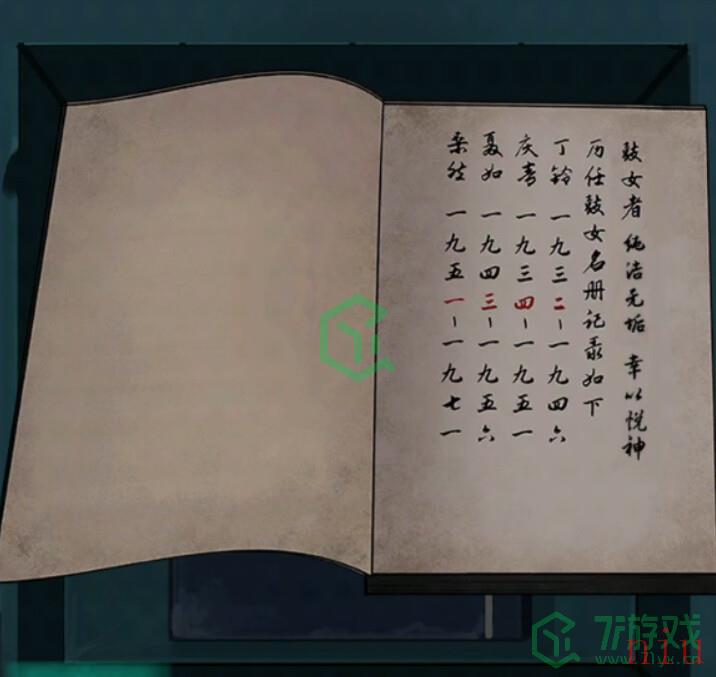 鼓女者 纯洁无垢 幸以悦神
历任鼓女名册记录如下
丁铃 一九三二-一九四六
庆喜 一九三四-一九五一
聂如 一九四三-一九五六
桑然 一九五一-一九七一
7Y游戏
www.7iyx.cn
njn